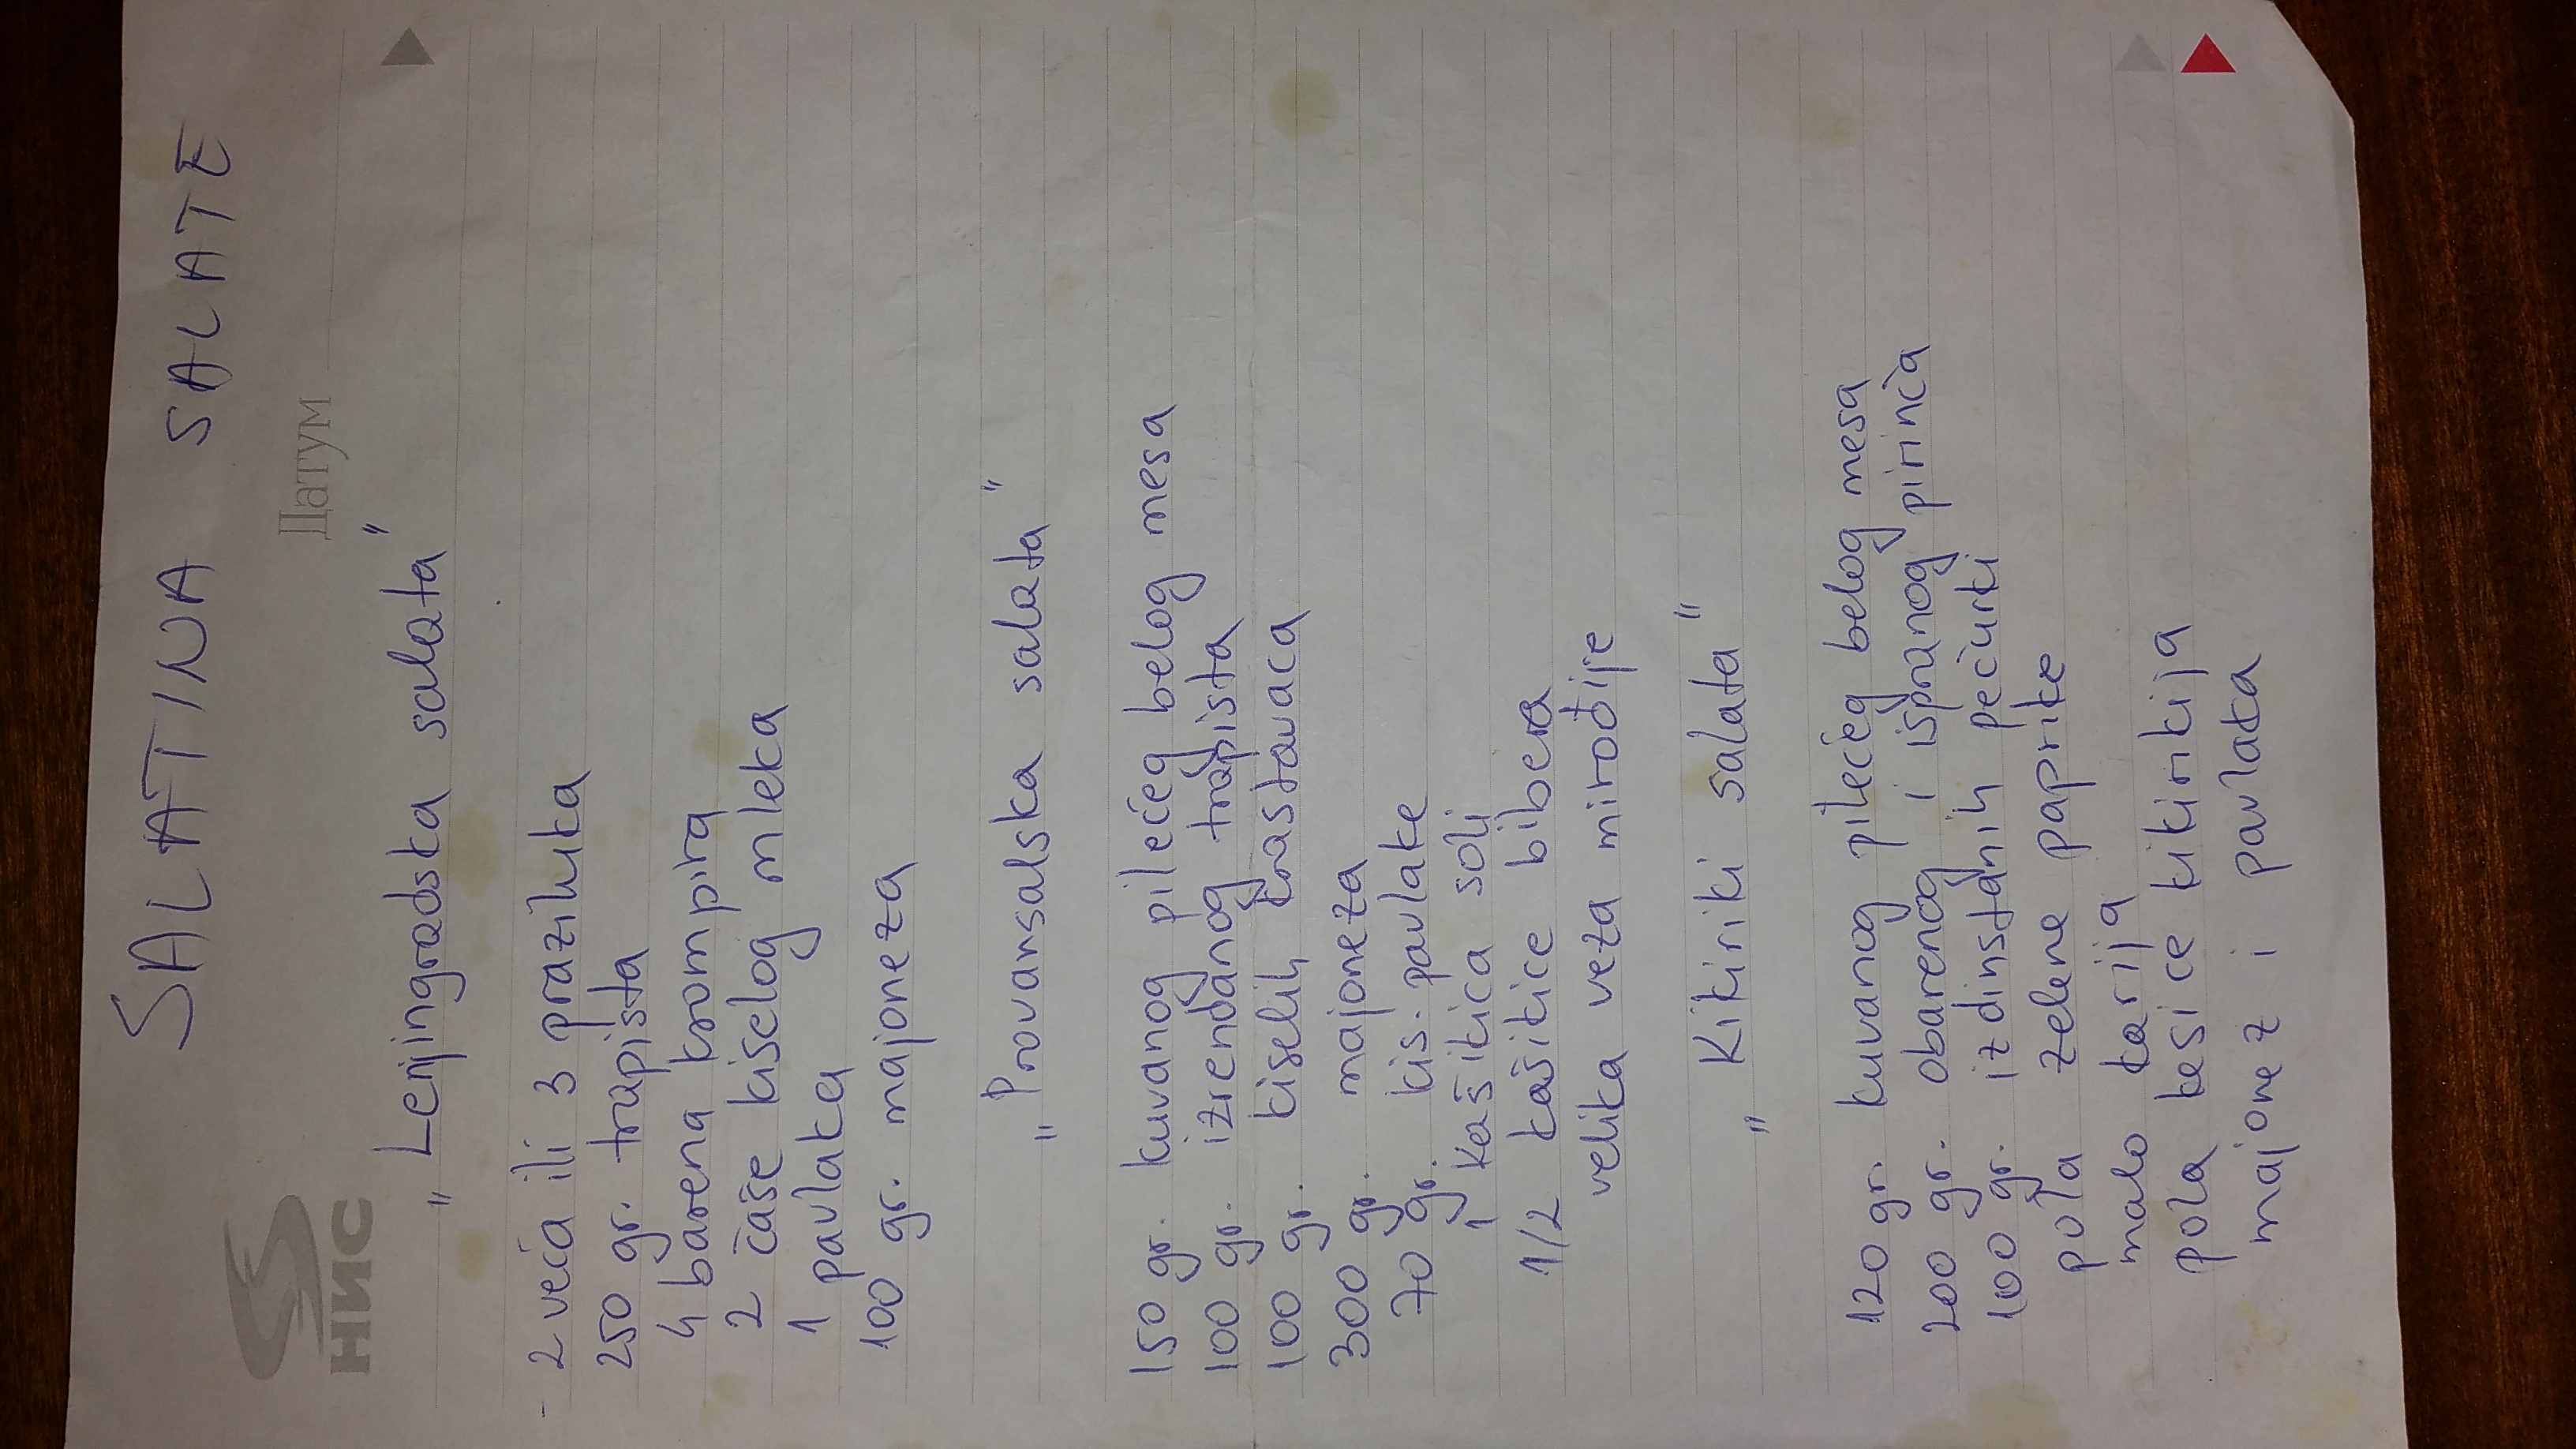 SALATINA SALATE
НИС
Датум
„Lenjingradska salata"
- 2 veća ili 3 praziluka
250 gr. trapista
4 barena krompira
2 čaše kiselog mleka
1 pavlaka
100 gr. majoneza
„Provansalska salata"
150 gr. kuvanog pilećeg belog mesa
100 gr. izrendanog trapista
100 gr. kiselih krastavaca
300 gr. majoneza
70 gr. kis. pavlake
1 kašikica soli
1/2 kašikice bibera
velika veza mirođije
„Kikiriki salata"
120 gr. kuvanog pilećeg belog mesa
200 gr. obarenog i ispranog pirinča
100 gr. izdinstanih pečurki
pola zelene paprike
malo karija
pola kesice kikirikija
majonez i pavlaka